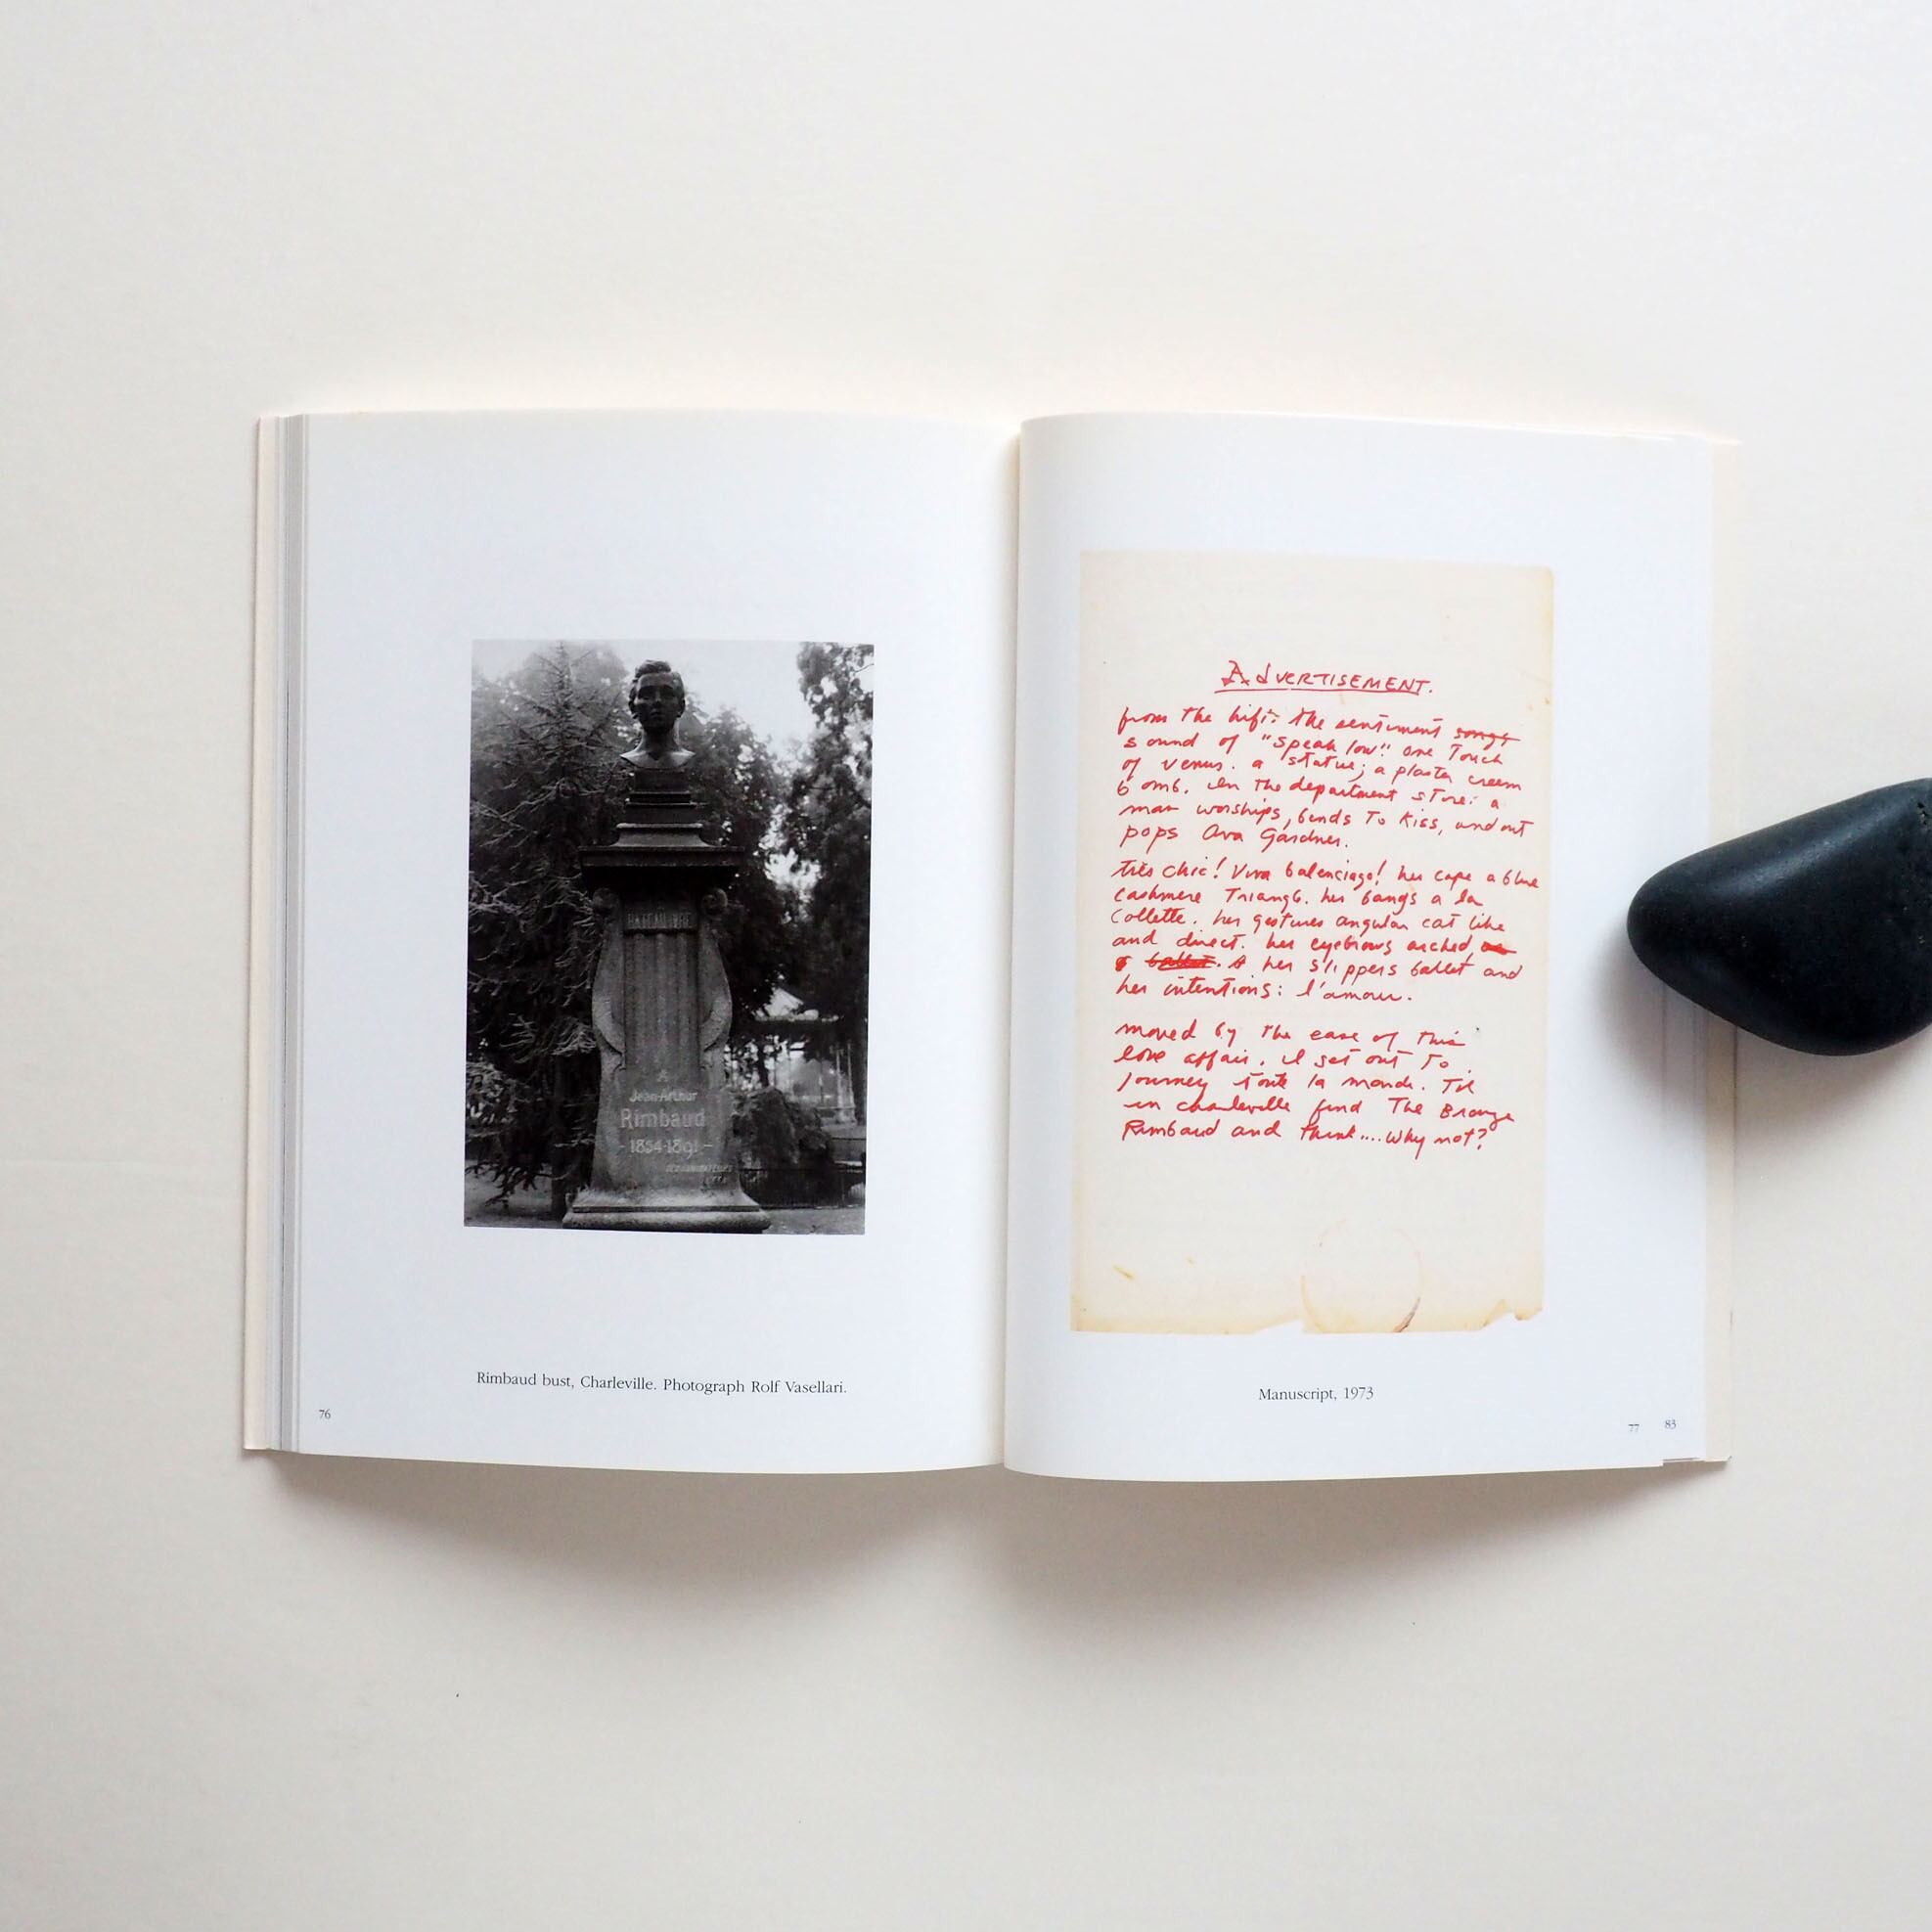 BATEAU IVRE
A
Jean-Arthur
Rimbaud
-1854-1891-
Rimbaud bust, Charleville. Photograph Rolf Vasellari.
76
ADVERTISEMENT.
from the hifi: the sentiment songs
sound of "speak low" one Touch
of venus. a statue; a plaster creem
bomb. In the department store: a
man worships, bends To Kiss, and out
pops Ava Gardner.
très chic! Viva balenciaga! her cape a blue
cashmere Triangle. her bangs a la
Collette. her gestures angular cat like
and direct. her eyebrows arched
ballet. her slippers ballet and
her intentions: l'amour.
moved by the ease of this
love affair. I set out To
journey toute la monde. Til
in charleville find The Bronze
Rimbaud and think.... Why not?
Manuscript, 1973
77
83